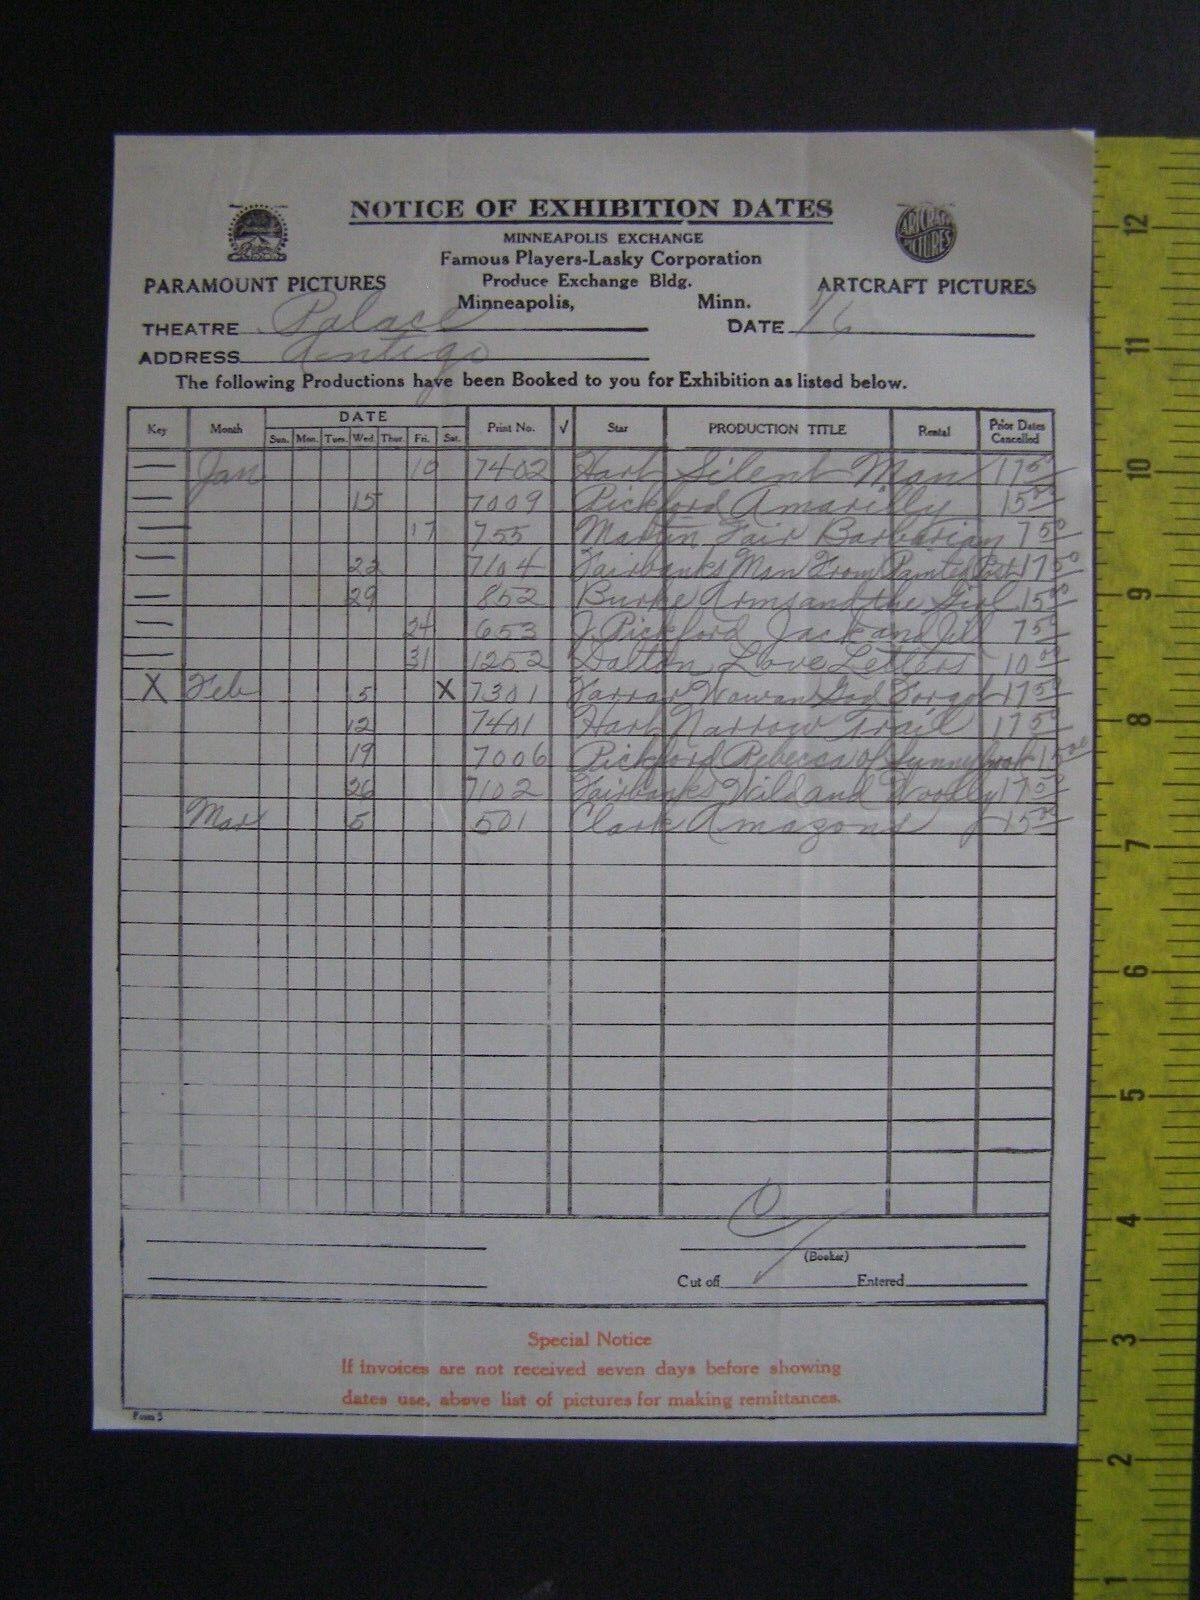 NOTICE OF EXHIBITION DATES
MINNEAPOLIS EXCHANGE
Famous Players-Lasky Corporation
Produce Exchange Bldg.
Minneapolis, Minn.
PARAMOUNT PICTURES
ARTCRAFT PICTURES
ARTCRAFT PICTURES
THEATRE Palace DATE 1/6
ADDRESS Antigo
The following Productions have been Booked to you for Exhibition as listed below.
Key Month DATE Print No. √ Star PRODUCTION TITLE Rental Prior Dates Cancelled
Sun. Mon. Tues. Wed. Thur. Fri. Sat.
— Jan 10 7402 Hart Silent Man 17 50
— 15 7009 Pickford Amarilly 15 00
— 17 755 Martin Fair Barbarian 7 50
— 22 7104 Fairbanks Man From Painted Post 17 50
— 29 852 Burke Arms and the Girl 15 00
— 24 653 J. Pickford Jack and Jill 7 50
— 31 1252 Dalton Love Letters 10 00
X Feb 5 X 7301 Farrar Woman God Forgot 17 50
12 7401 Hart Narrow Trail 17 50
19 7006 Pickford Rebecca of Sunnybrook 15 00
26 7102 Fairbanks Wild and Woolly 17 50
Mar 5 501 Clark Amazons 15 00
(Booker)
Cut off Entered
Special Notice
If invoices are not received seven days before showing
dates use, above list of pictures for making remittances.
Form 5
12
11
10
9
8
7
6
5
4
3
2
1